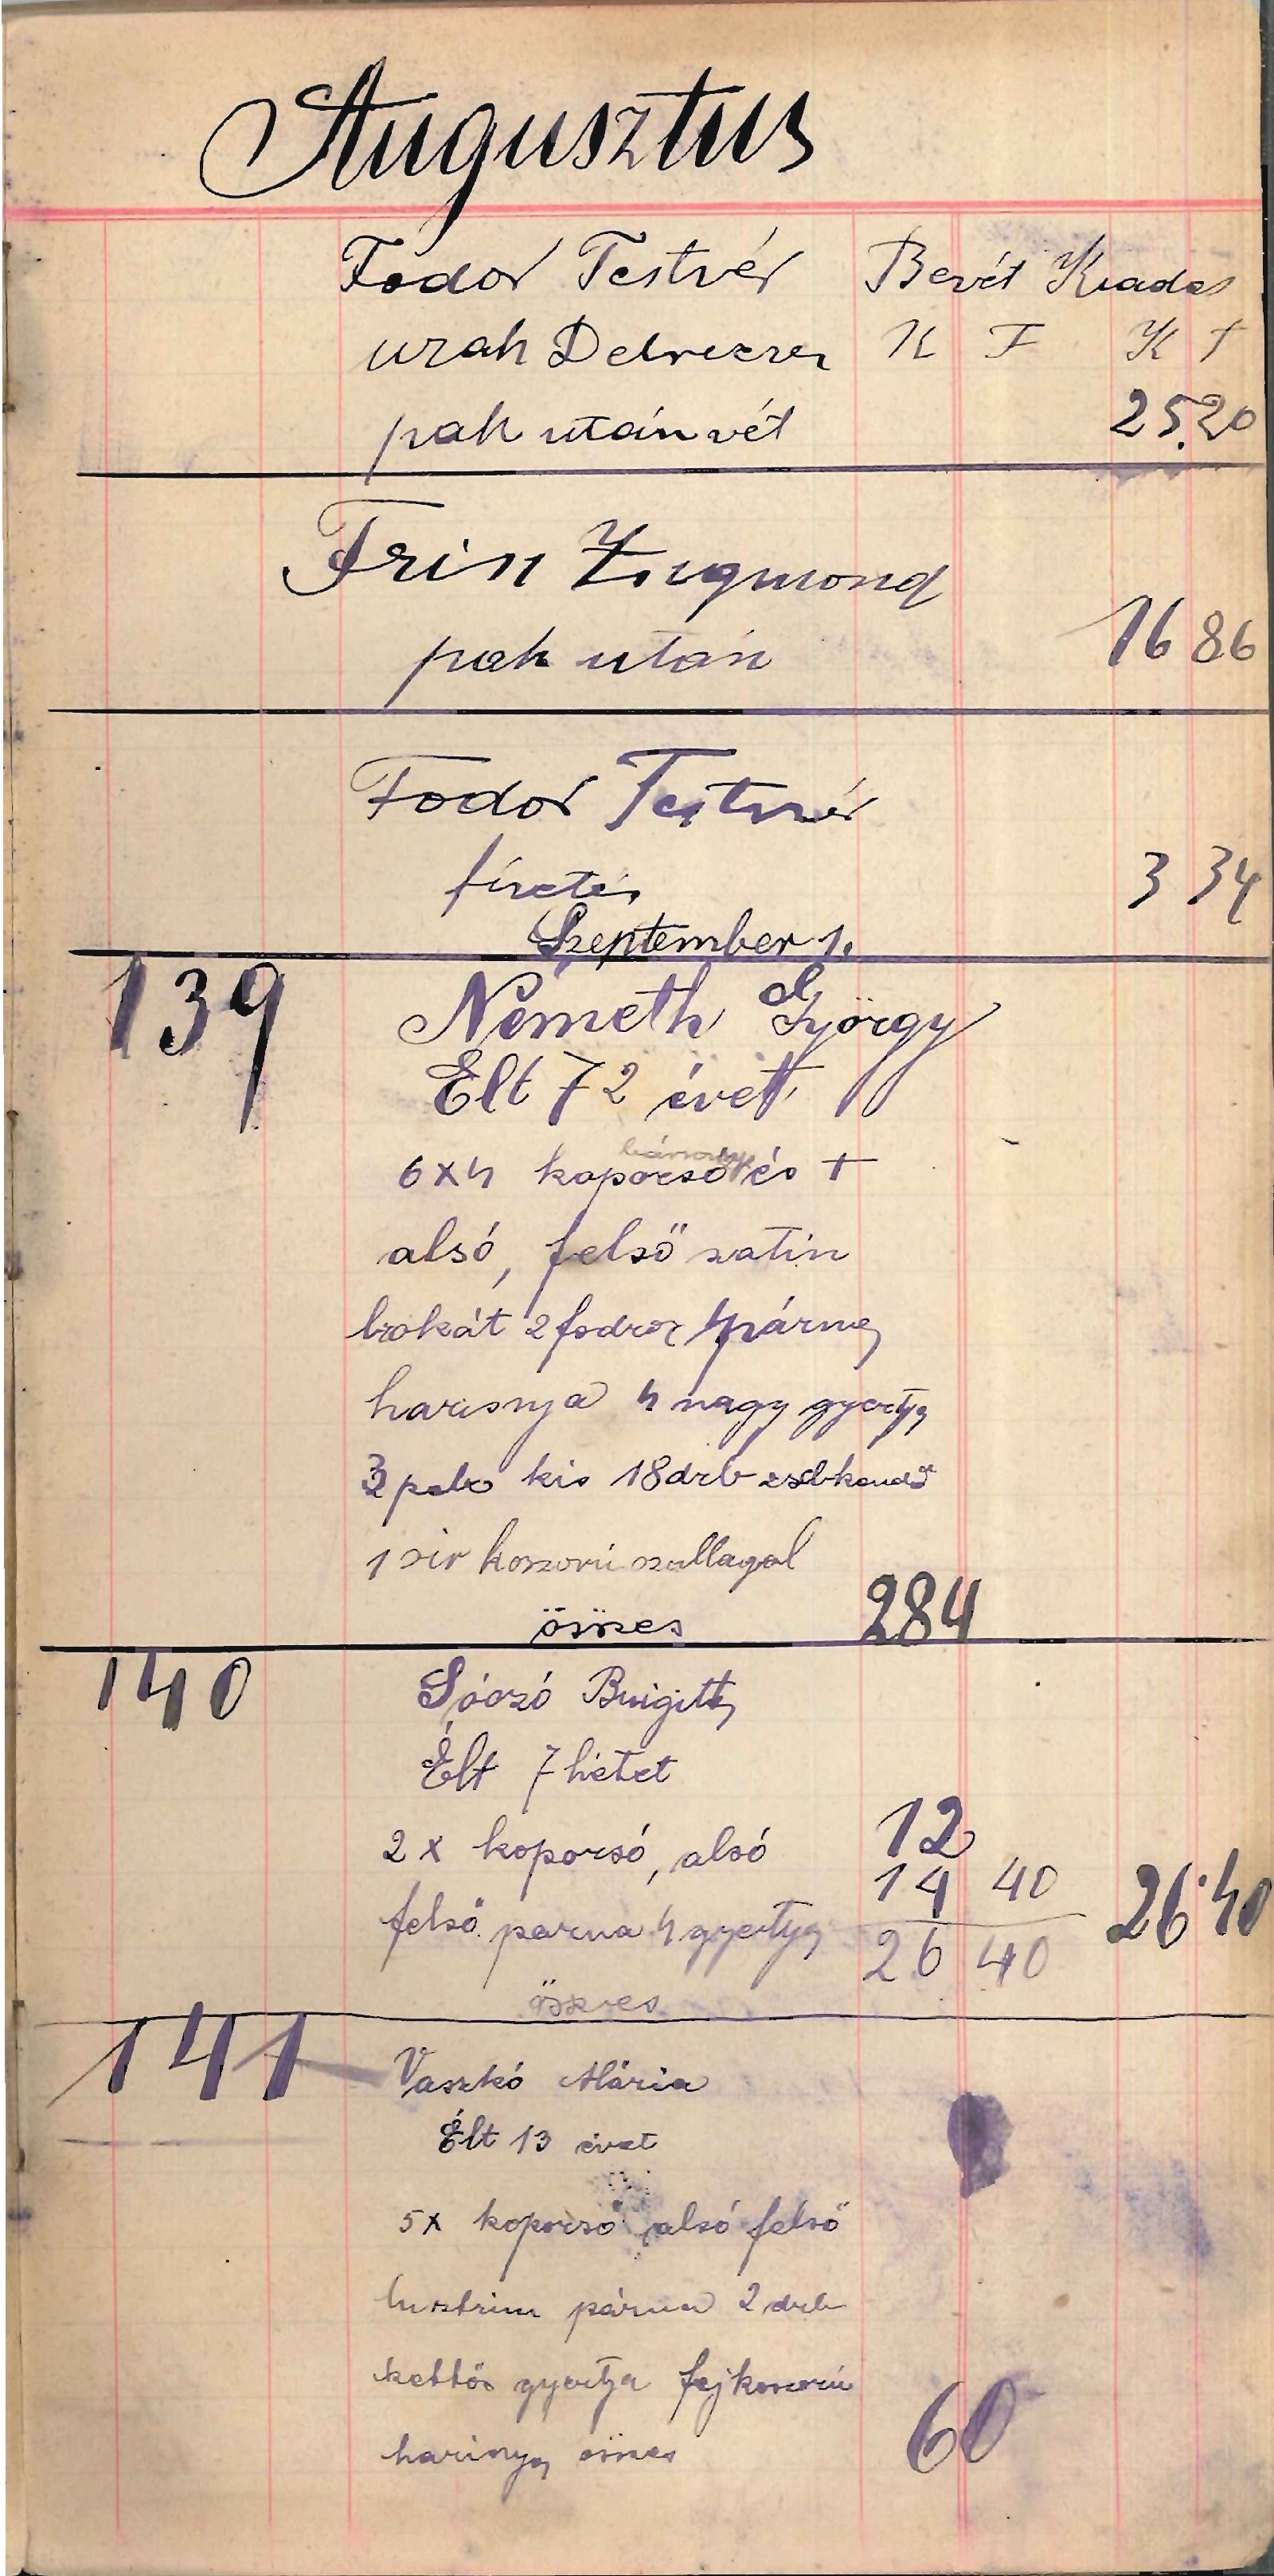 Augusztus
Fodor Testvér Bevét Kiadas
urak Debreczen K F K f
pak utánvét 25.20
Frin Zsigmond
pak után 16 86
Fodor Testvér
fizetés 3 34
September 1.
139 Németh György
Élt 72 évet
bársony
6x4 koporsó és +
alsó, felső satin
brokát 2 fodros párna
harisnya 4 nagy gyertya
kis 18 drb zsebkendő
1 sir koszorú szallagal
összes 284
140 Sóozó Brigitta
Élt 7 hétet
2 x koporsó, alsó 12
14 40 26.40
felső parna 4 gyertya
26 40
összes
141 Vaszkó Mária
Élt 13 évet
5x koporsó alsó felső
lusztrin párna 2 drb
kettős gyertya fejkoszorú
harisnya összes 60